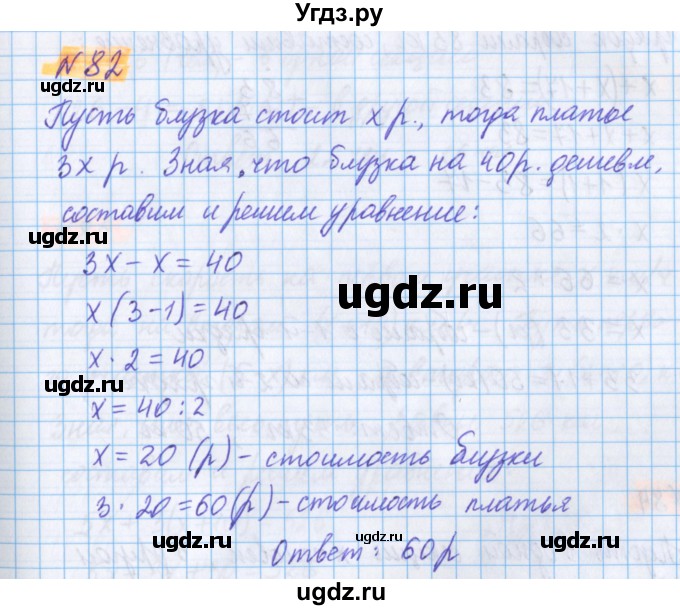 Угдз.ру
N82
Пусть блузка стоит x р., тогда платье
3x р. Зная, что блузка на 40р. дешевле,
составим и решим уравнение:
3x - x = 40
x (3-1) = 40
x · 2 = 40
x = 40 : 2
x = 20 (р) - стоимость блузки
3 · 20 = 60 (р) - стоимость платья
Ответ: 60 р
ugdz.ru
ugdz.ru
ugdz.ru
ugdz.ru
ugdz.ru
ugdz.ru
ugdz.ru
ugdz.ru
ugdz.ru
ugdz.ru